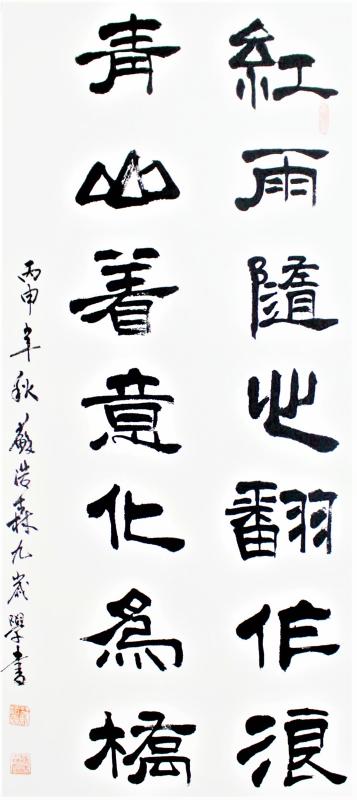 紅雨隨心翻作浪
青山着意化為橋
丙申年秋浩森九歲學書